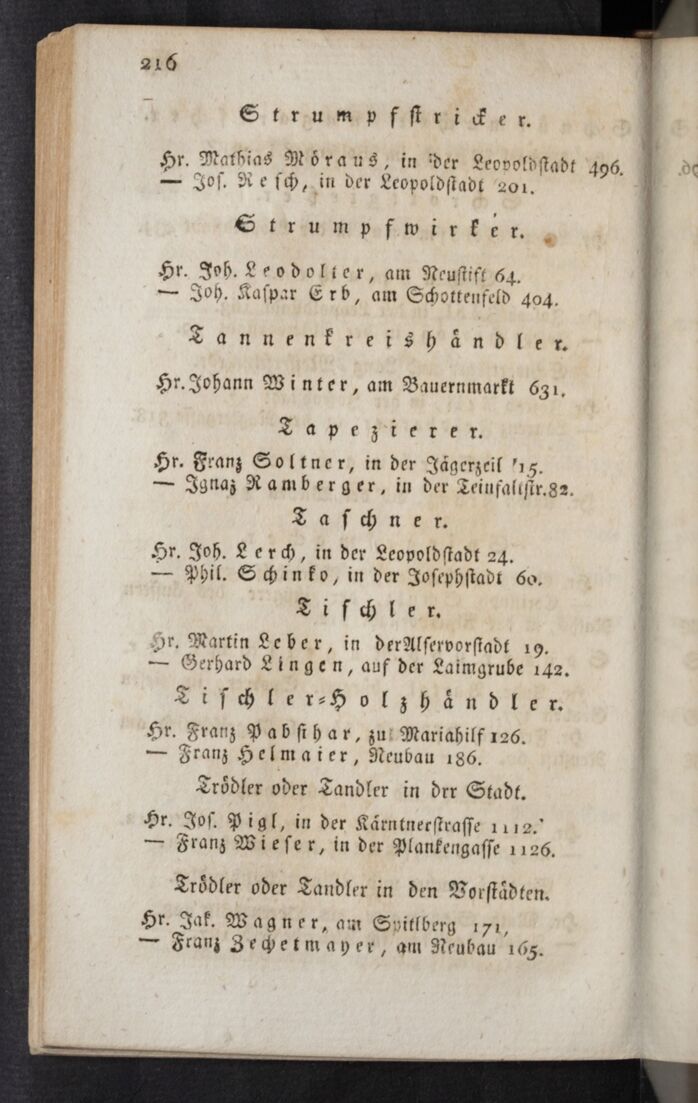 216
Strumpfstricker.
Hr. Mathias Möraus, in der Leopoldstadt 496.
— Jos. Resch, in der Leopoldstadt 201.
Strumpfwirker.
Hr. Joh. Leodolter, am Neustift 64.
— Joh. Kaspar Erb, am Schottenfeld 404.
Tannenkreishändler.
Hr. Johann Winter, am Bauernmarkt 631.
Tapezierer.
Hr. Franz Soltner, in der Jägerzeil 15.
— Ignaz Ramberger, in der Teinfaltstr. 82.
Taschner.
Hr. Joh. Lerch, in der Leopoldstadt 24.
— Phil. Schinko, in der Josephstadt 60.
Tischler.
Hr. Martin Leber, in der Alservorstadt 19.
— Gerhard Lingen, auf der Laimgrube 142.
Tischler-Holzhändler.
Hr. Franz Pabsthar, zu Mariahilf 126.
— Franz Helmaier, Neubau 186.
Trödler oder Tandler in drr Stadt.
Hr. Jos. Pigl, in der Kärntnerstrasse 1112.
— Franz Wieser, in der Plankengasse 1126.
Trödler oder Tandler in den Vorstädten.
Hr. Jak. Wagner, am Spitlberg 171,
— Franz Zechetmayer, am Neubau 165.